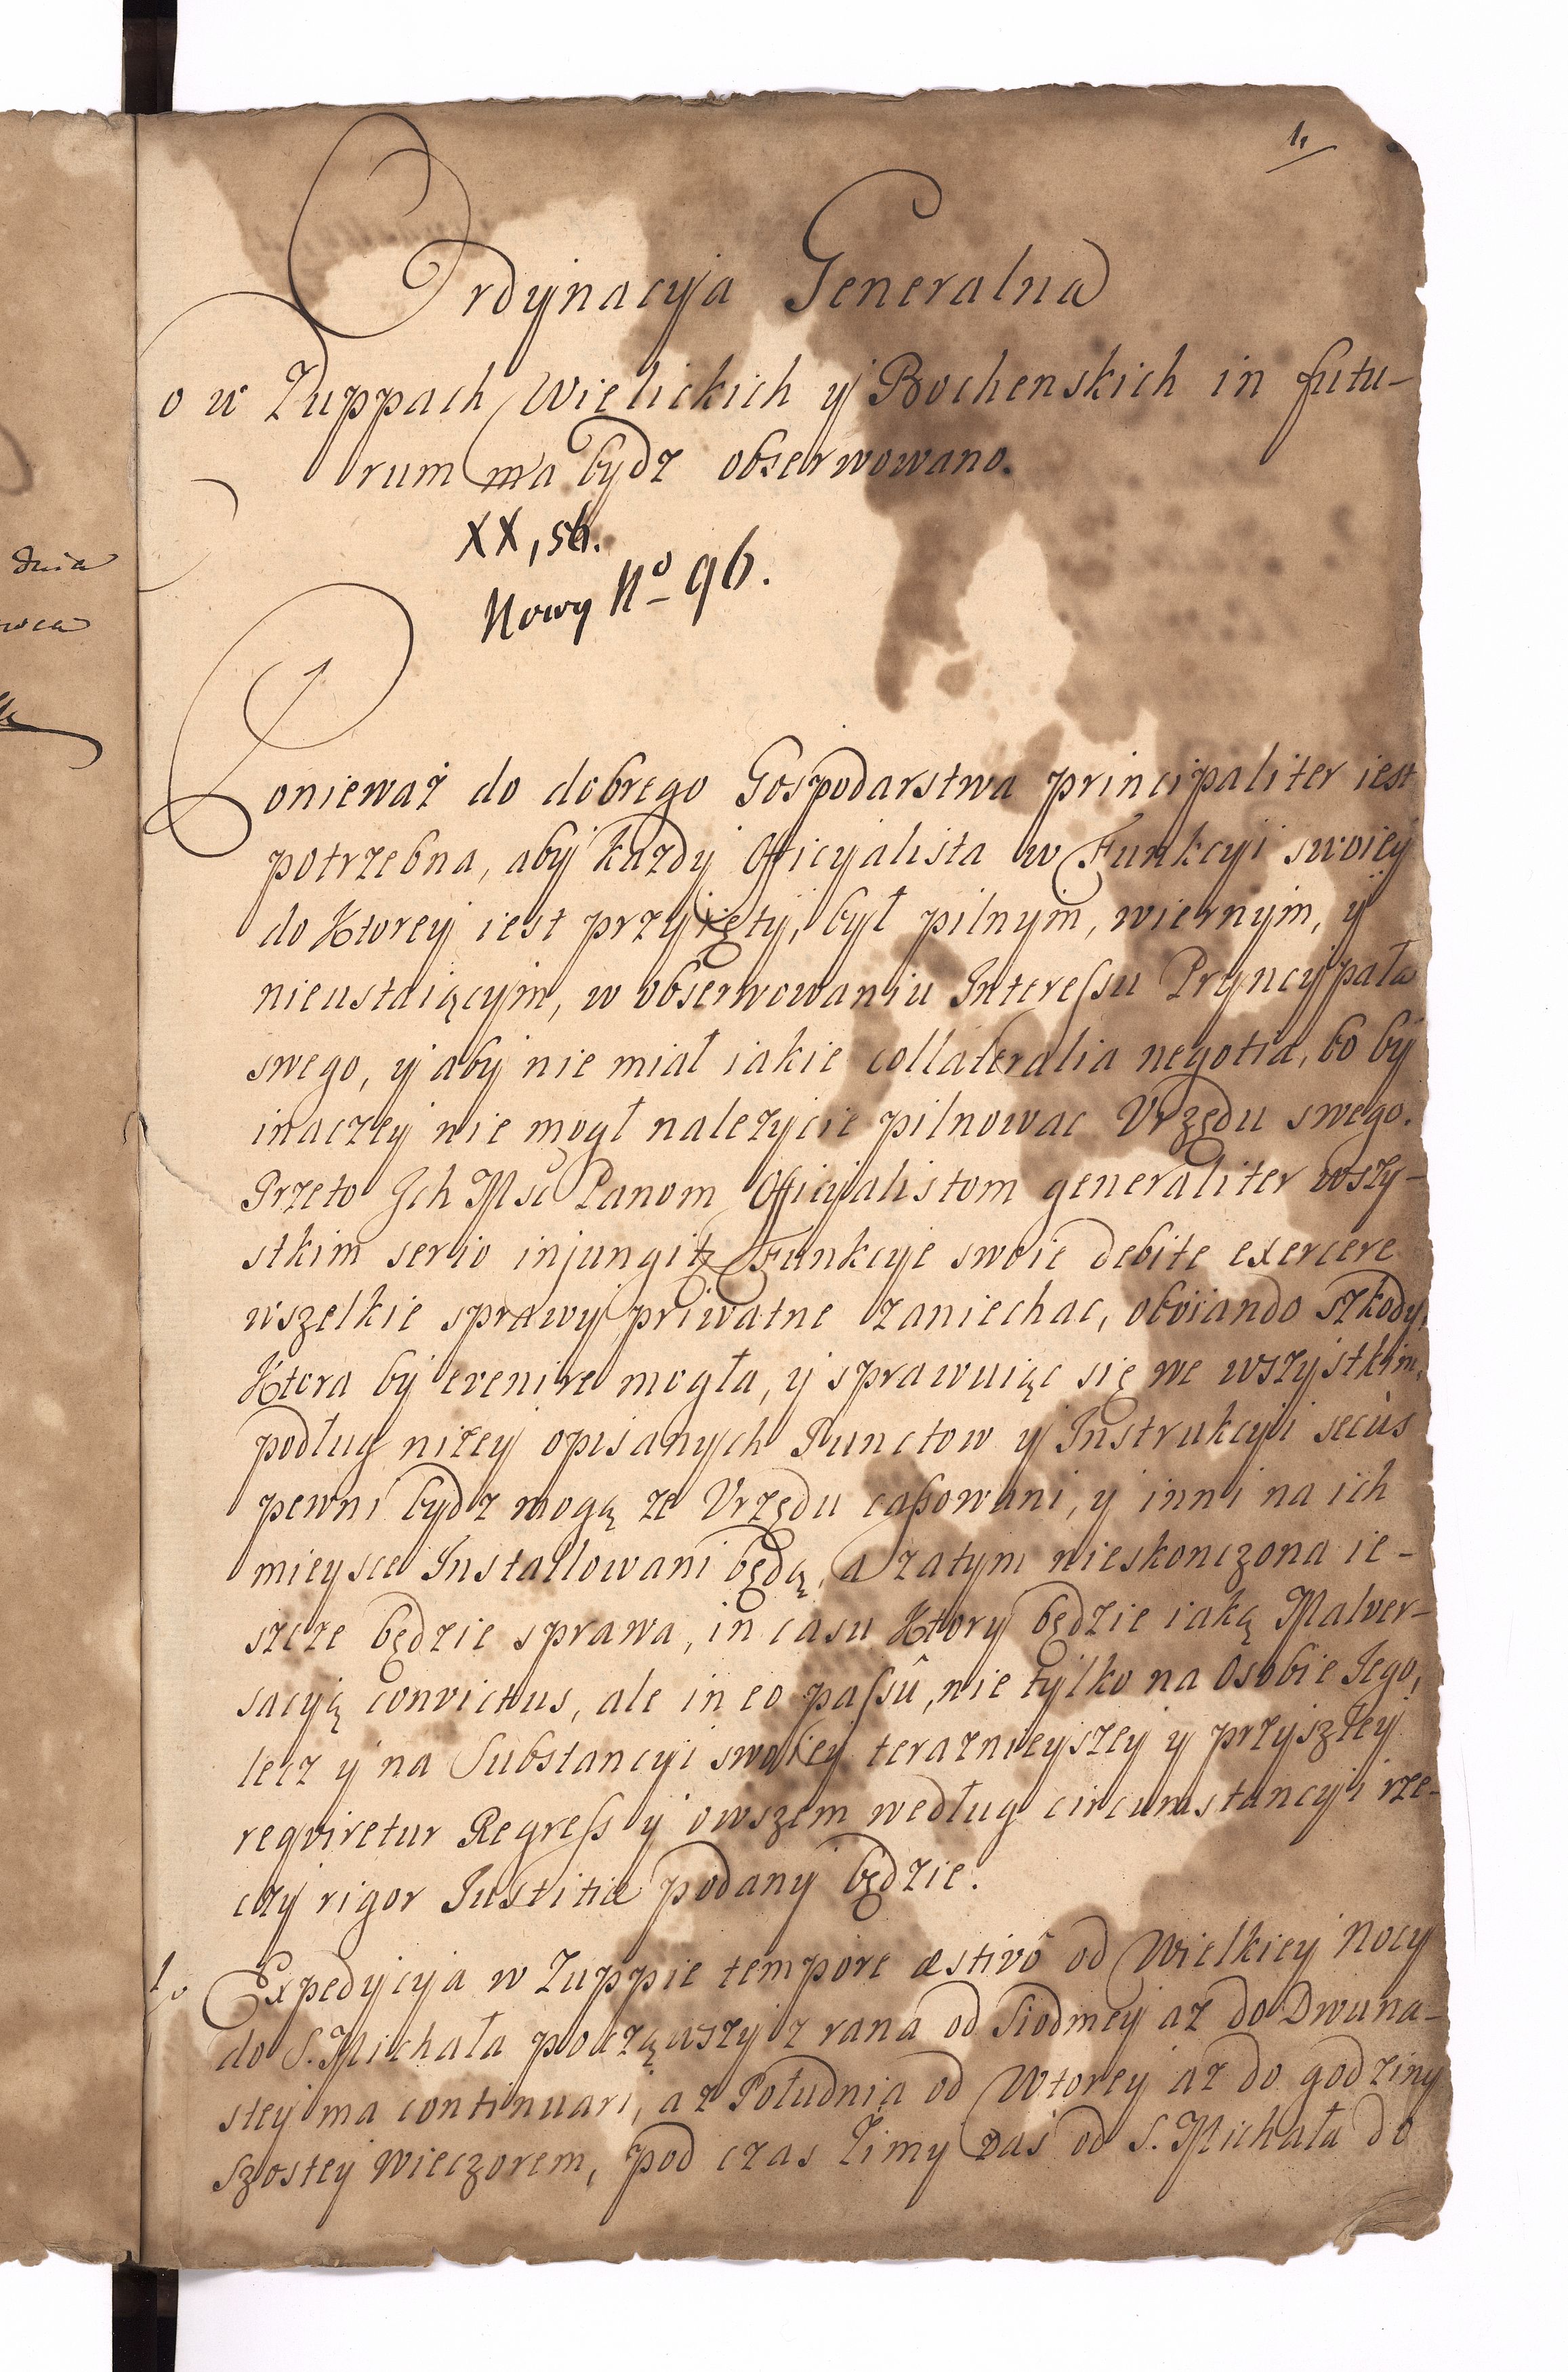 1,
Ordynacyja Generalna
o w Zuppach Wielickich y Bochenskich in futu-
rum ma bydz obserwowano.
XX, 56.
Nowy No 96.
Ponieważ do dobrego Gospodarstwa principaliter iest
potrzebna, aby każdy Officyalista w Funkcyi swoiey
do Ktorey iest przyięty, był pilnym, wiernym, y
nieustaiącym, w obserwowaniu Interessu Pryncypała
swego, y aby nie miał iakie collateralia negotia, bo by
inaczey nie mogł należycie pilnowac Vrzędu swego.
Przeto Ich Msc Panom Officyalistom generaliter wszy-
stkim serio injungitz Funkcye swoie debite exercere
wszelkie sprawy priwatne zaniechac, obviando szkody,
Ktora by evenire mogła, y sprawuiąc się we wszystkim,
podług niżey opisanych Punctow y Instrukcyi secùs
pewni bydz mogą ze Vrzędu cassowani, y inni na ich
mieysce Installowani będą, a zatym nieskonczona ie-
szcze będzie sprawa, in casu Ktory będzie iaką Malver-
sacyą convictus, ale in eo passû, nie tylko na Osobie Iego,
lecz y na Substancyi swoiey teraznieyszey y przyszłey
reqviretur Regress y owszem według circumstancyi rze-
czy rigor Iustitiæ podany będzie.
1o Expedycyja w Zuppie tempore æstivô od Wielkiey Nocy
do S. Michała począwszy z rana od Siodmey aż do Dwuna-
stey ma continuari, a z Południa od Wtorey aż do godziny
Szostey Wieczorem, pod czas Zimy zaś od S. Michała do
dnia